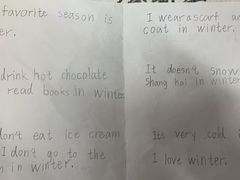 favorite season is
er.
drink hot chocolate
read books in winter
don't eat ice cream
I don't go to the
in winter.
I wear a scarf
coat in winter.
It doesn't snow
Shang hai in winter
Its very cold
I love winter.